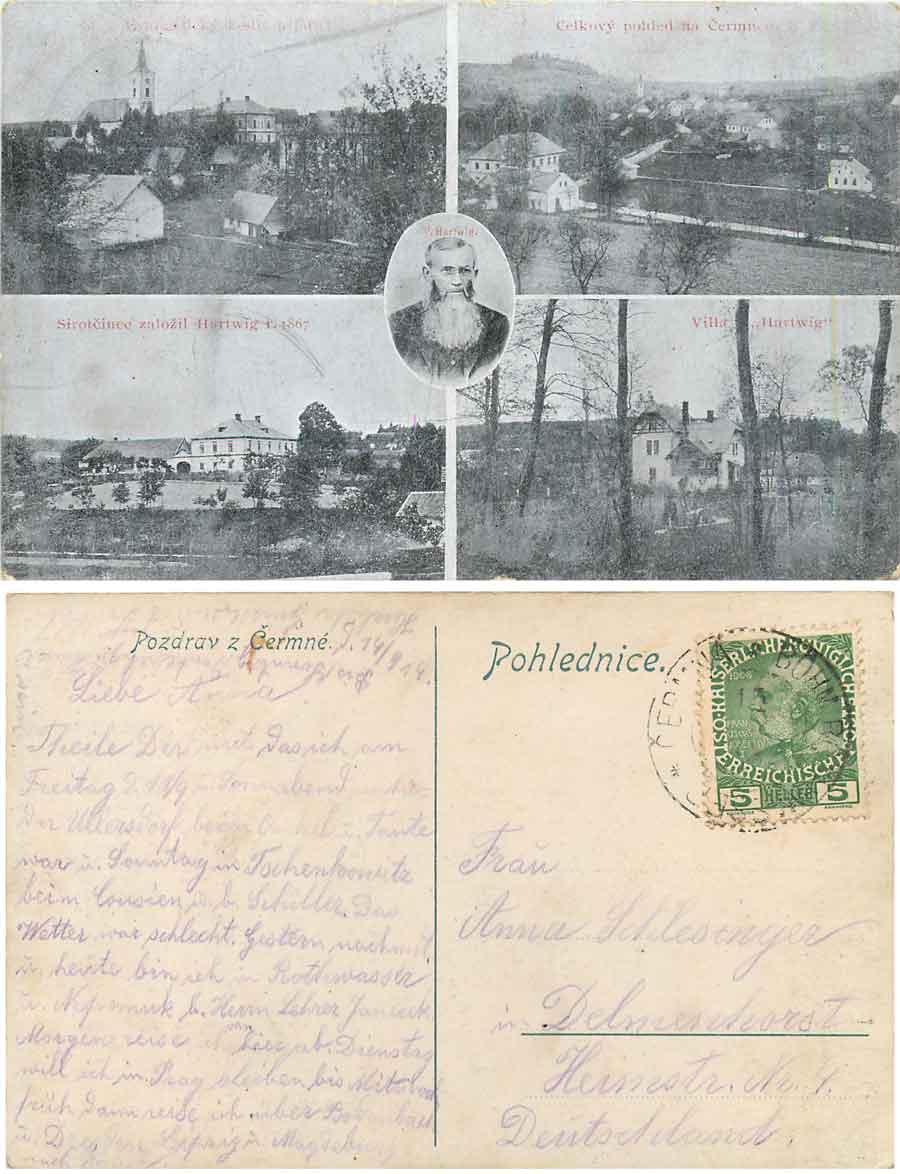 Celkový pohled na Čermnou
Hartwig.
Sirotčinec založil Hartwig r. 1867
Villa „Hartwig“
Pozdrav z Čermné. d. 14/9 14.
Liebe Anna
Theile Dir mit, das ich am
Freitag d. 11/9 u. Sonnabend in
der Ullersdorf beim Onkel u. Tante
war u. Sonntag in Tschenkowitz
beim Cousien u. b. Schiller. Das
Wetter war schlecht. Gestern nachmit.
u. heute bin ich in Rothwasser
u. Nepomuk b. Herrn Lehrer Janecek
Morgen reise ich hier ab. Dienstag
will ich in Prag bleiben bis Mitwoch
früh dann reise ich über Bodenbach
u. Dresden Leipzig u. Magdeburg
Pohlednice.
KAISERL. KÖNIGL.
ÖSTERREICHISCHE
1908
5 HELLER 5
Frau
Anna Schlesinger
in Delmenhorst
Heimstr. Nr. 4.
Deutschland.